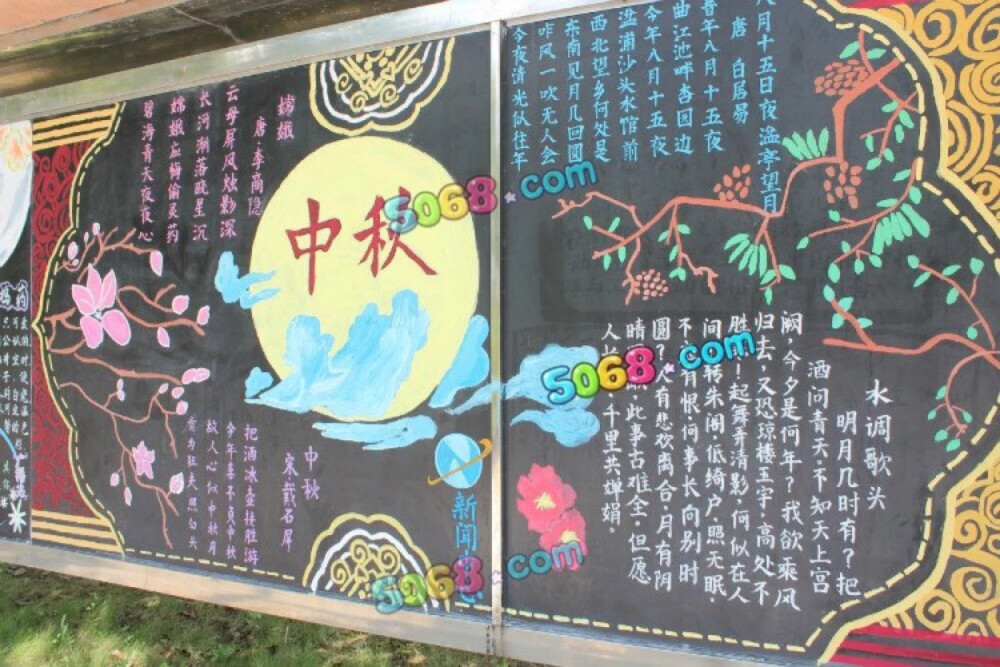 八月十五日夜湓亭望月
唐 白居易
昔年八月十五夜
曲江池畔杏园边
今年八月十五夜
湓浦沙头水馆前
西北望乡何处是
东南见月几回圆
昨风一吹无人会
今夜清光似往年
水调歌头
明月几时有？把
酒问青天，不知天上宫
阙，今夕是何年？我欲乘风
归去，又恐琼楼玉宇，高处不
胜！起舞弄清影，何似在人
间 转朱阁，低绮户，照无眠，
不 有恨，何事长向别时
圆？人有悲欢离合，月有阴
晴 ，此事古难全，但愿
人 ，千里共婵娟。
嫦娥
唐·李商隐
云母屏风烛影深
长河渐落晓星沉
嫦娥应悔偷灵药
碧海青天夜夜心
中秋
中秋
宋·戴石屏
把酒冰壶接胜游
今年喜不负中秋
故人心似中秋月
肯为狂夫照白头
新闻
5068.com
5068.com
5068.com